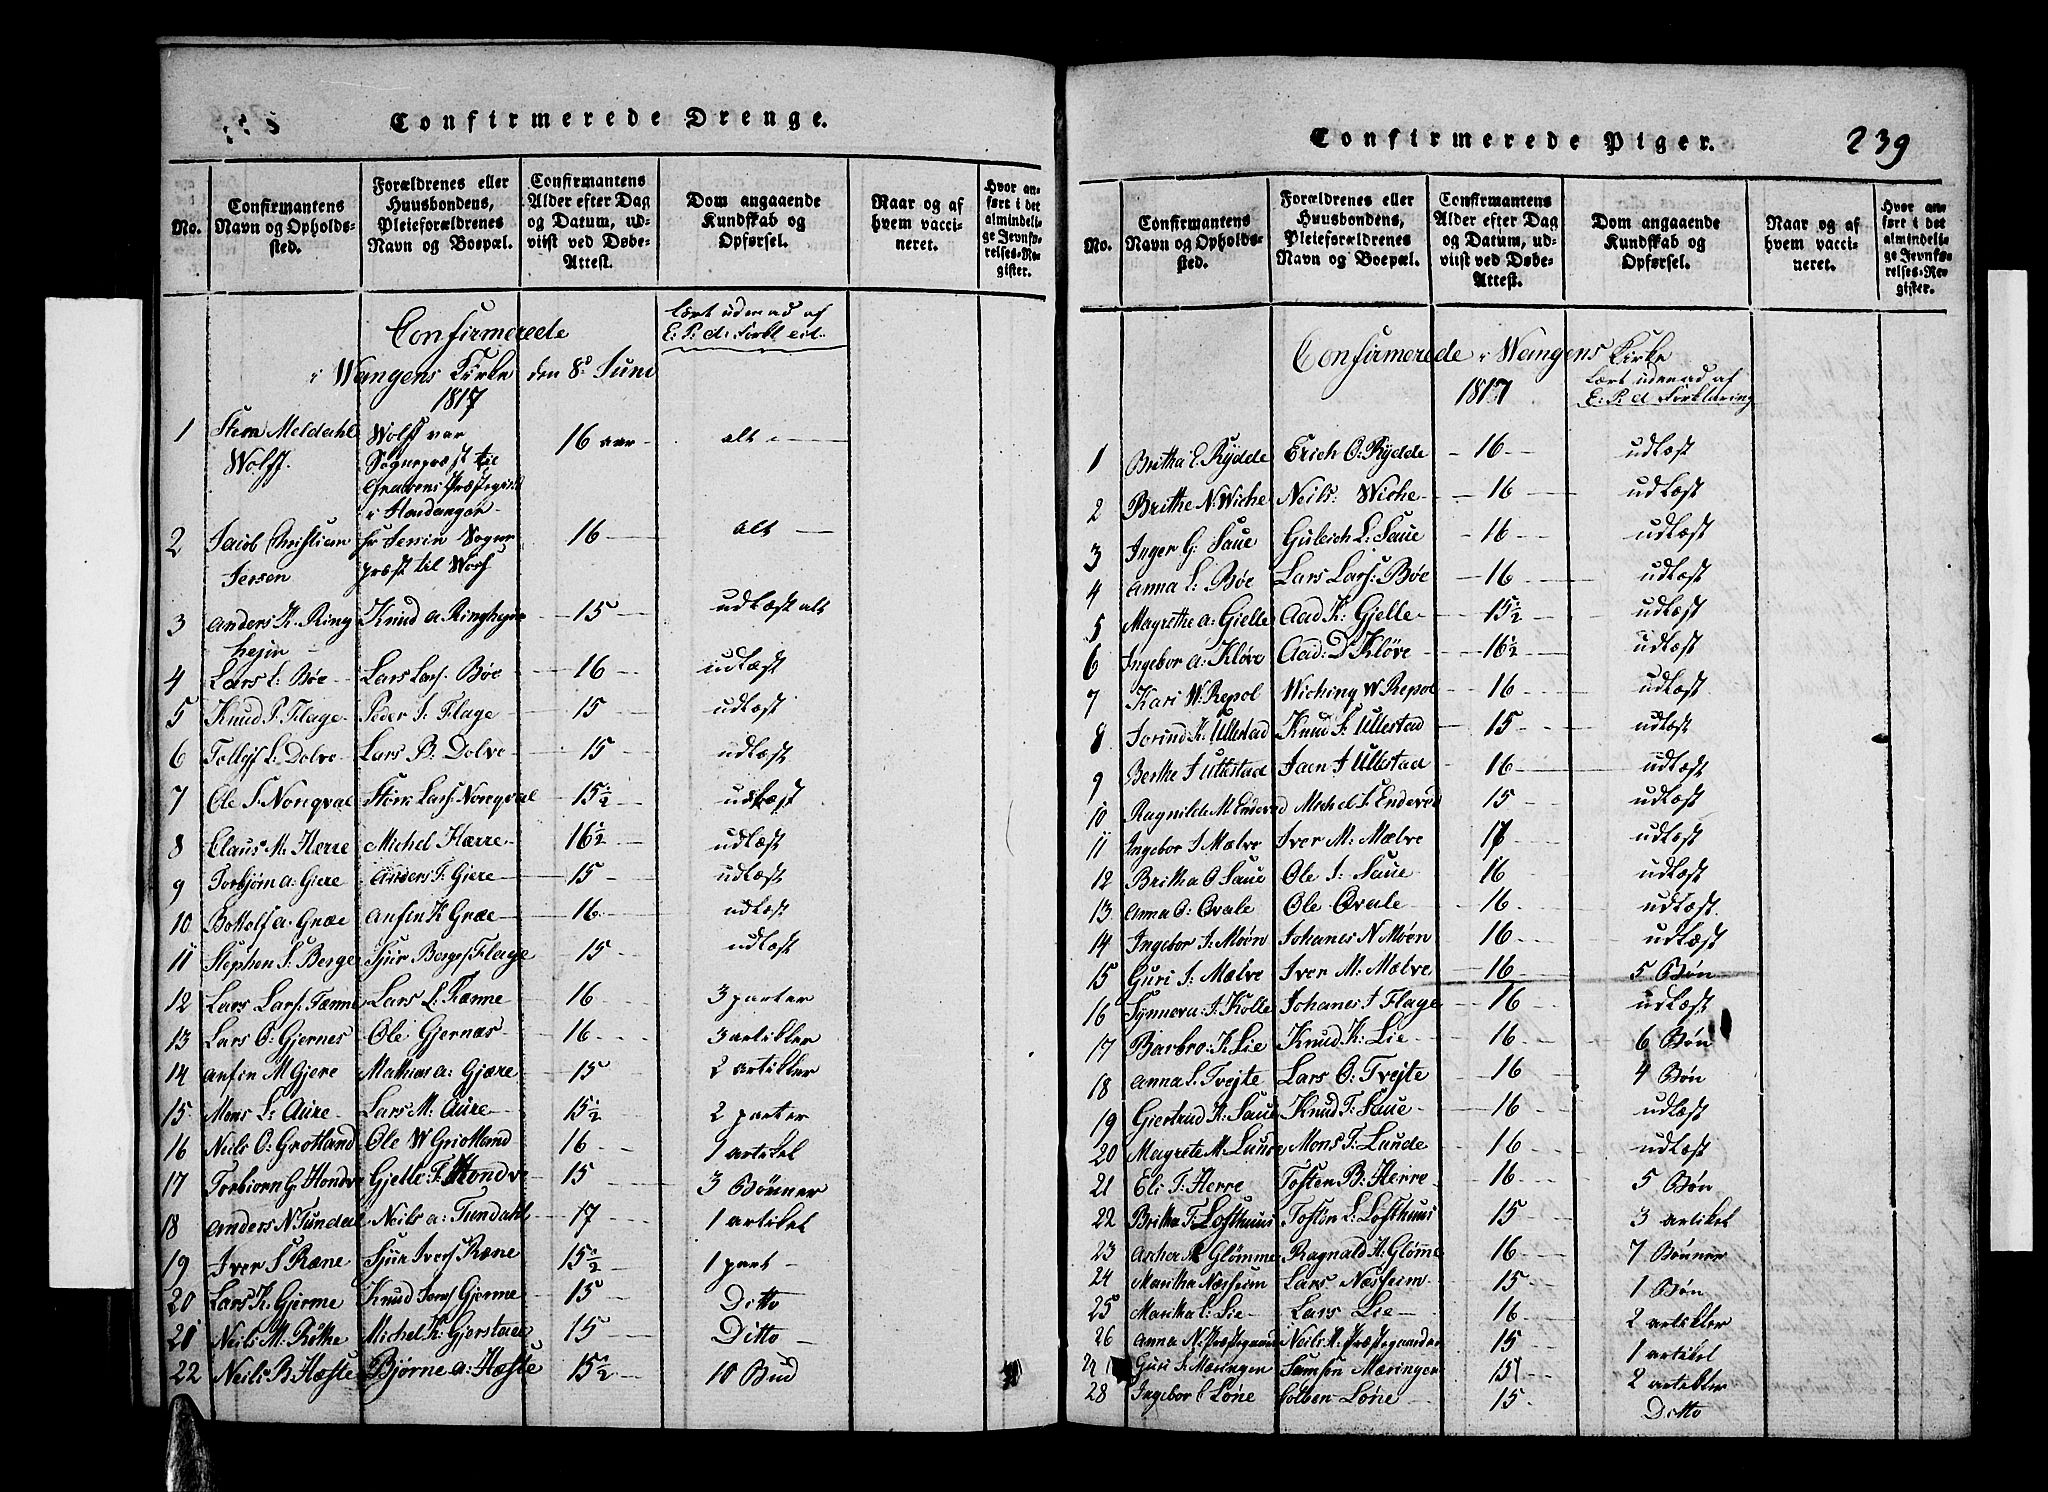 Confirmerede Drenge.
No.
Confirmantens Navn og Opholdssted.
Forældrenes eller Huusbondens, Pleieforældrenes Navn og Boepæl.
Confirmantens Alder efter Dag og Datum, udviist ved Døbe-Attest.
Dom angaaende Kundskab og Opførsel.
Naar og af hvem vaccineret.
Hvor anført i det almindelige Jevnførelses-Register.
Confirmerede
i Wangens Kirke den 8de Juni
1817
lært udenad af
E: P. d: Forkl
1 Sten Meldahl Wolff. Wolff var Sognepræst til Gravens Præstegield i Hardanger 16 aar alt
2 Jacob Christian Jersen hr Jersin Sogne præst til Woss 16 alt
3 Anders K. Ringhejm Knud A Ringhejm 15 udlæst alt
4 Lars L: Bøe Lars Lars: Bøe 16 udlæst
5 Knud P. Flage Peder S. Flage 15 udlæst
6 L: Dolve Lars B. Dolve 15 udlæst
7 Ole S. Nonqval Lars: Nonqval 15 1/2 udlæst
8 Claus M. Herre Michel Hærre 16 1/2 udlæst
9 Torbjørn A: Giere Anders T: Gjere 15 udlæst
10 Bottolf A: Græe Anfin K Græe 16 udlæst
11 Stephen S: Berge Sjur Berge/Flage 15 udlæst
12 Lars Lars: Rænne Lars L: Rænne 16 3 parter
13 Lars O: Gjernes Ole Gjernæs 16 3 artikler
14 Anfin M Gjere Mathias A: Gjære 15 2 artikler
15 Mons L: Aure Lars M: Aure 15 1/2 2 parter
16 Neils O: Grotland Ole W Griotland 16 1 artikel
17 Torbiorn G Hondve Gjelle T. Hondve 15 3 Bønner
18 Anders N Tundal Neils A: Tundahl 17 1 artikel
19 Iver S Ræne Sjur Ivers Ræne 15 1/2 1 part
20 Lars K. Gjerme Knud Gjerme 15 Ditto
21 Neils M. Røthe Michel K: Gjerstad 15 Ditto
22 Neils B. Hæfte Bjørne A: Hæfte 15 1/2 10 Bud
Confirmerede Piger. 239
No.
Confirmantens Navn og Opholdssted.
Forældrenes eller Huusbondens, Pleieforældrenes Navn og Boepæl.
Confirmantens Alder efter Dag og Datum, udviist ved Døbe-Attest.
Dom angaaende Kundskab og Opførsel.
Naar og af hvem vaccineret.
Hvor anført i det almindelige Jevnførelses-Register.
Confirmerede i Wangens Kirke
1817
lært udenad af
E: P. d Forklaring
1 Britha E. Rydde Erich O: Rydde 16 udlæst
2 Brithe N. Wiche Neils: Wiche 16 udlæst
3 Inger G: Saue Gulich L: Saue 16 udlæst
4 Anna L: Bøe Lars Lars: Bøe 16 udlæst
5 Magrethe A: Gielle Aad K: Gjelle 15 1/2 udlæst
6 Ingebor A: Kløve Aad: D Kløve 16 1/2 udlæst
7 Kari W. Repol Wiching W Repol 16 udlæst
8 Jorind K. Ullestad Knud S. Ullestad 15 udlæst
9 Berthe J Ullestad Jaen J Ullestad 16 udlæst
10 Ragnilde M. Michel S. Endeve 15 udlæst
11 Ingebor I Mælve Iver M: Mælve 17 udlæst
12 Britha O Saue Ole S: Saue 16 udlæst
13 Anna O: Qvale Ole Qvale 16 udlæst
14 Ingebor J: Møøn Johanes N Møøn 16 udlæst
15 Guri I: Mælve Iver M: Mælve 16 5 Bøn
16 Synneva J: Kolle Johanes J Flage 16 udlæst
17 Barbro: K Lie Knud K: Lie 16 6 Bøn
18 Anna L Tvejte Lars O: Tvejte 16 4 Bøn
19 Giertrud K: Saue Knud T: Saue 16 udlæst
20 Magrete M: Lunde Mons T: Lunde 16 udlæst
21 Eli T: Herre Tosten B: Herre 16 5 Bøn
22 Britha T Lofthuus Tosten L: Lofthuus 15 3 artikel
23 Glømme Ragnald A: Glømme 16 7 Bønner
24 Martha Næsheim Lars Næsheim 15 1 Bøn
25 Martha L: Lie Lars Lie 16 2 artikler
26 Anna N: Præstegaarden Neils A: Præstegaarden 15 1 artikel
27 Guri S. Mæringen Samson Mæringen 15 2 artikler
28 Ingebor C Løne Colben Løne 15 Ditto